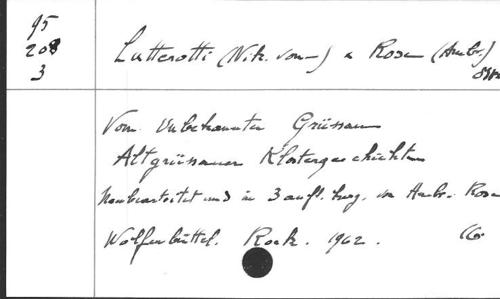 95
208
3
Lutterotti (Nik. von-) & Rose (Ambr.)
Vom Unbekannten Grüssau
Altgrüssauer Klostergeschichten
Neubearbeitet und in 3 aufl. hrsg. von Ambr. Rose
Wolfenbüttel. Roek. 1962.